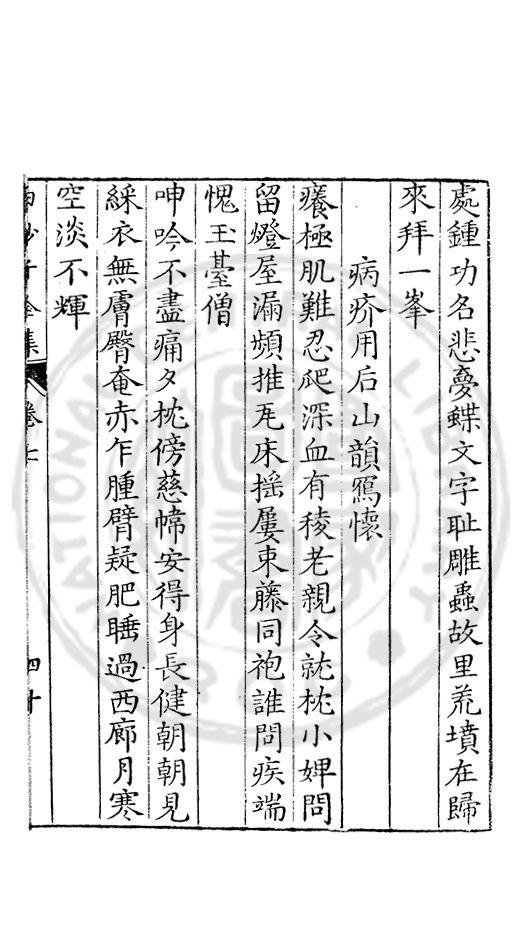 處鍾功名悲夢蝶文字耻雕蟲故里荒墳在歸
來拜一峯
病疥用后山韻寫懷
癢極肌難忍爬深血有稜老親令就枕小婢問
留燈屋漏頻推瓦床揺屢束藤同袍誰問疾端
愧玉臺僧
呻吟不盡痛夕枕傍慈幃安得身長健朝朝見
綵衣無膚臀奄赤乍腫臂疑肥睡過西廊月寒
空淡不輝
全集 卷七 四十